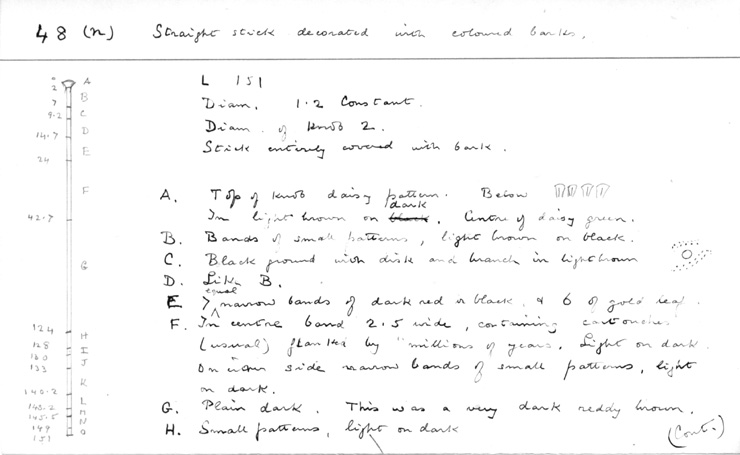 48 (n) Straight stick decorated with coloured barks.
L 151
Diam. 1·2 Constant.
Diam. of knob 2.
Stick entirely covered with bark.
A. Top of knob daisy pattern. Below
In light brown on black dark. Centre of daisy green.
B. Bands of small patterns, light brown on black.
C. Black ground with disk and branch in light brown
D. Like B.
E 7 equal narrow bands of dark red or black, & 6 of gold leaf.
F. In centre band 2·5 wide, containing cartouches
(usual) flanked by "millions of years. Light on dark.
On either side narrow bands of small patterns, light
on dark.
G. Plain dark. This was a very dark reddy brown.
H. Small patterns, light on dark
(Cont.)
0
2 A
7 B
9·2 C
14·7 D
24 E
F
42·7
G
124
H
128
I
130
J
133
K
140·2
L
143·2
M
145·5
N
149
O
151